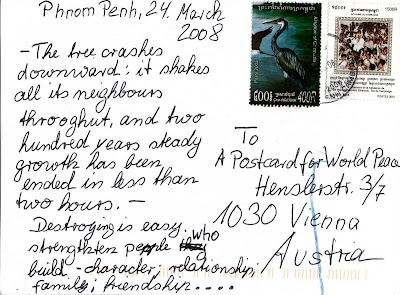 Phnom Penh, 24. March
2008
- The tree crashes
downward: it shakes
all its neighbours
throoghut, and two
hundred years steady
growth has been
ended in less than
two hours. -
Destroging is easy,
strengthten people who
build - character, relationship,
family, friendship ....
To
A Postcard for World Peace
Henslerstr. 3/7
1030 Vienna
Austria